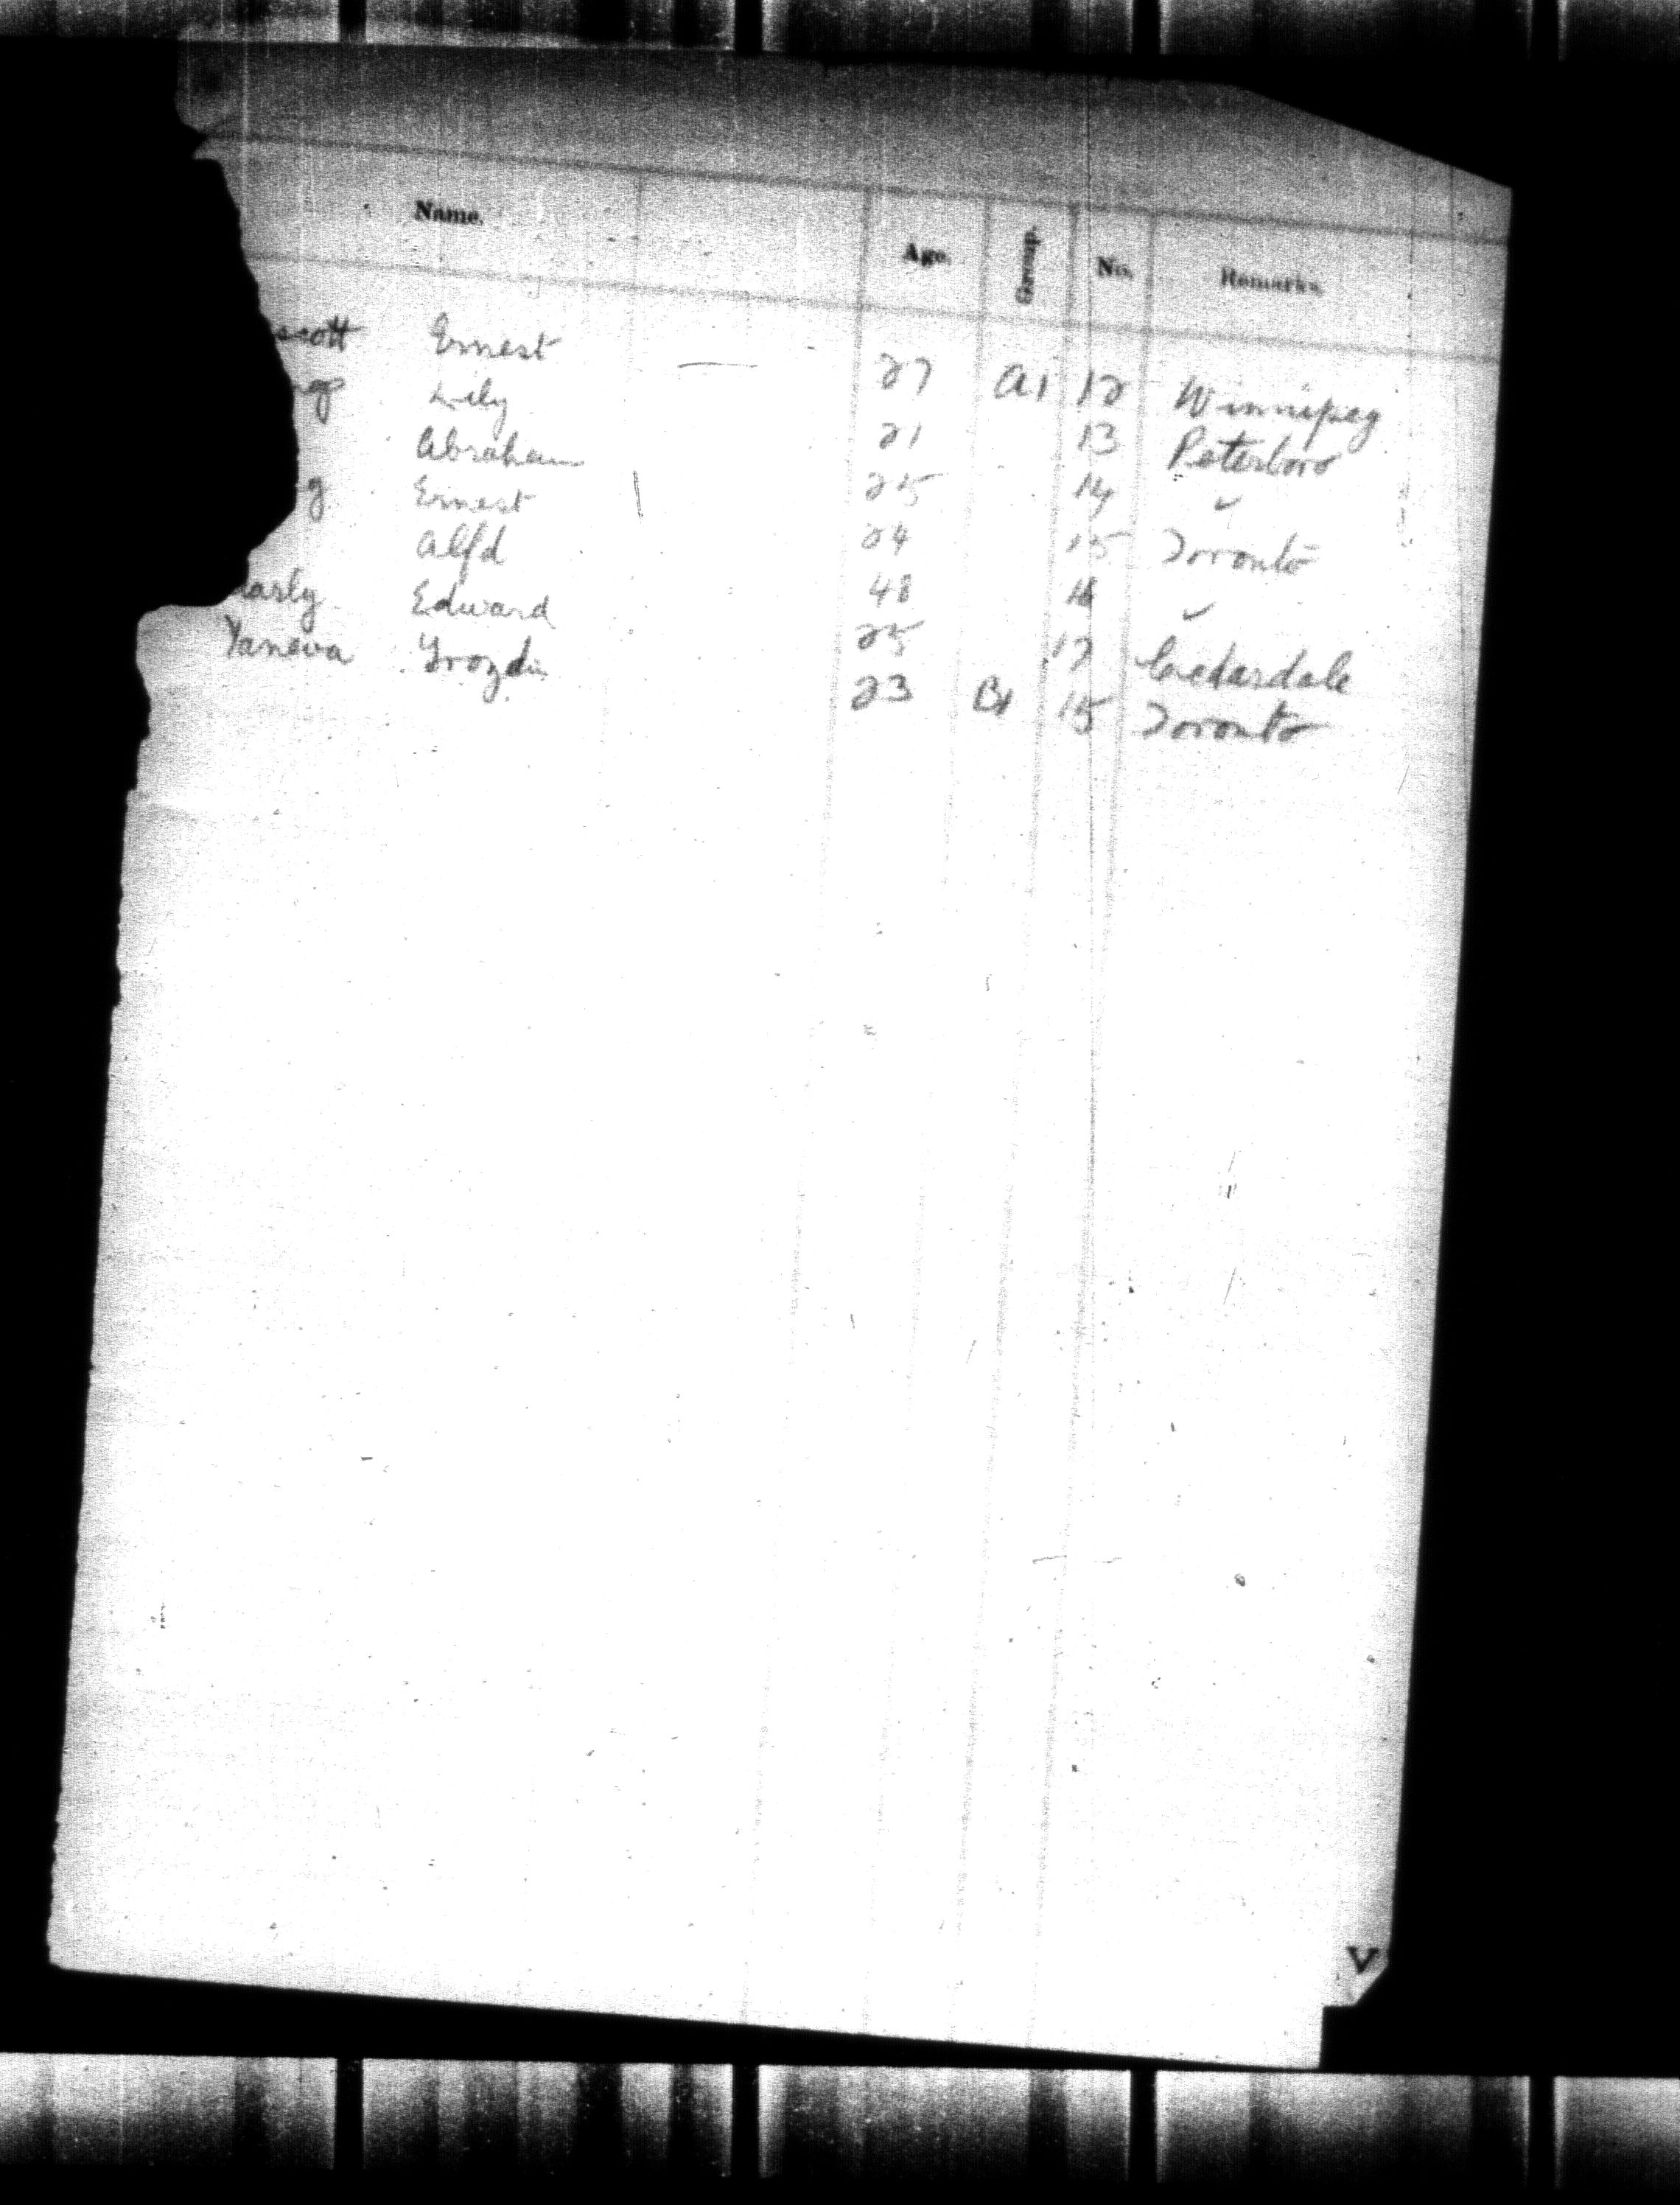 Name. Age. Group. No. Remarks.
scott Ernest — 27 A1 12 Winnipeg
Lily 21 13 Peterboro
Abraham 25 14 "
g Ernest 24 15 Toronto
Alfd 48 16 "
Edward 25 17 Cedardale
Yaneva 23 B1 15 Toronto
V